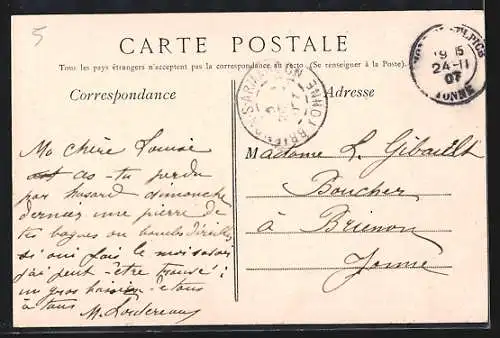 5
CARTE POSTALE
Tous les pays étrangers n'acceptent pas la correspondance au recto. (Se renseigner à la Poste).
Correspondance
Adresse
19 15
24-11
07
YONNE
BRIENON-S-ARMANÇON
YONNE
Ma chère Louise
as-tu perdu
par hasard dimanche
dernier une pierre de
tes bagues ou boucles d'oreilles
si oui fais le moi savoir
j'ai peut-être trouvé;
un gros baiser à tous
à tous
M.
Madame L. Gibault
Boucher
à Brienon
Yonne